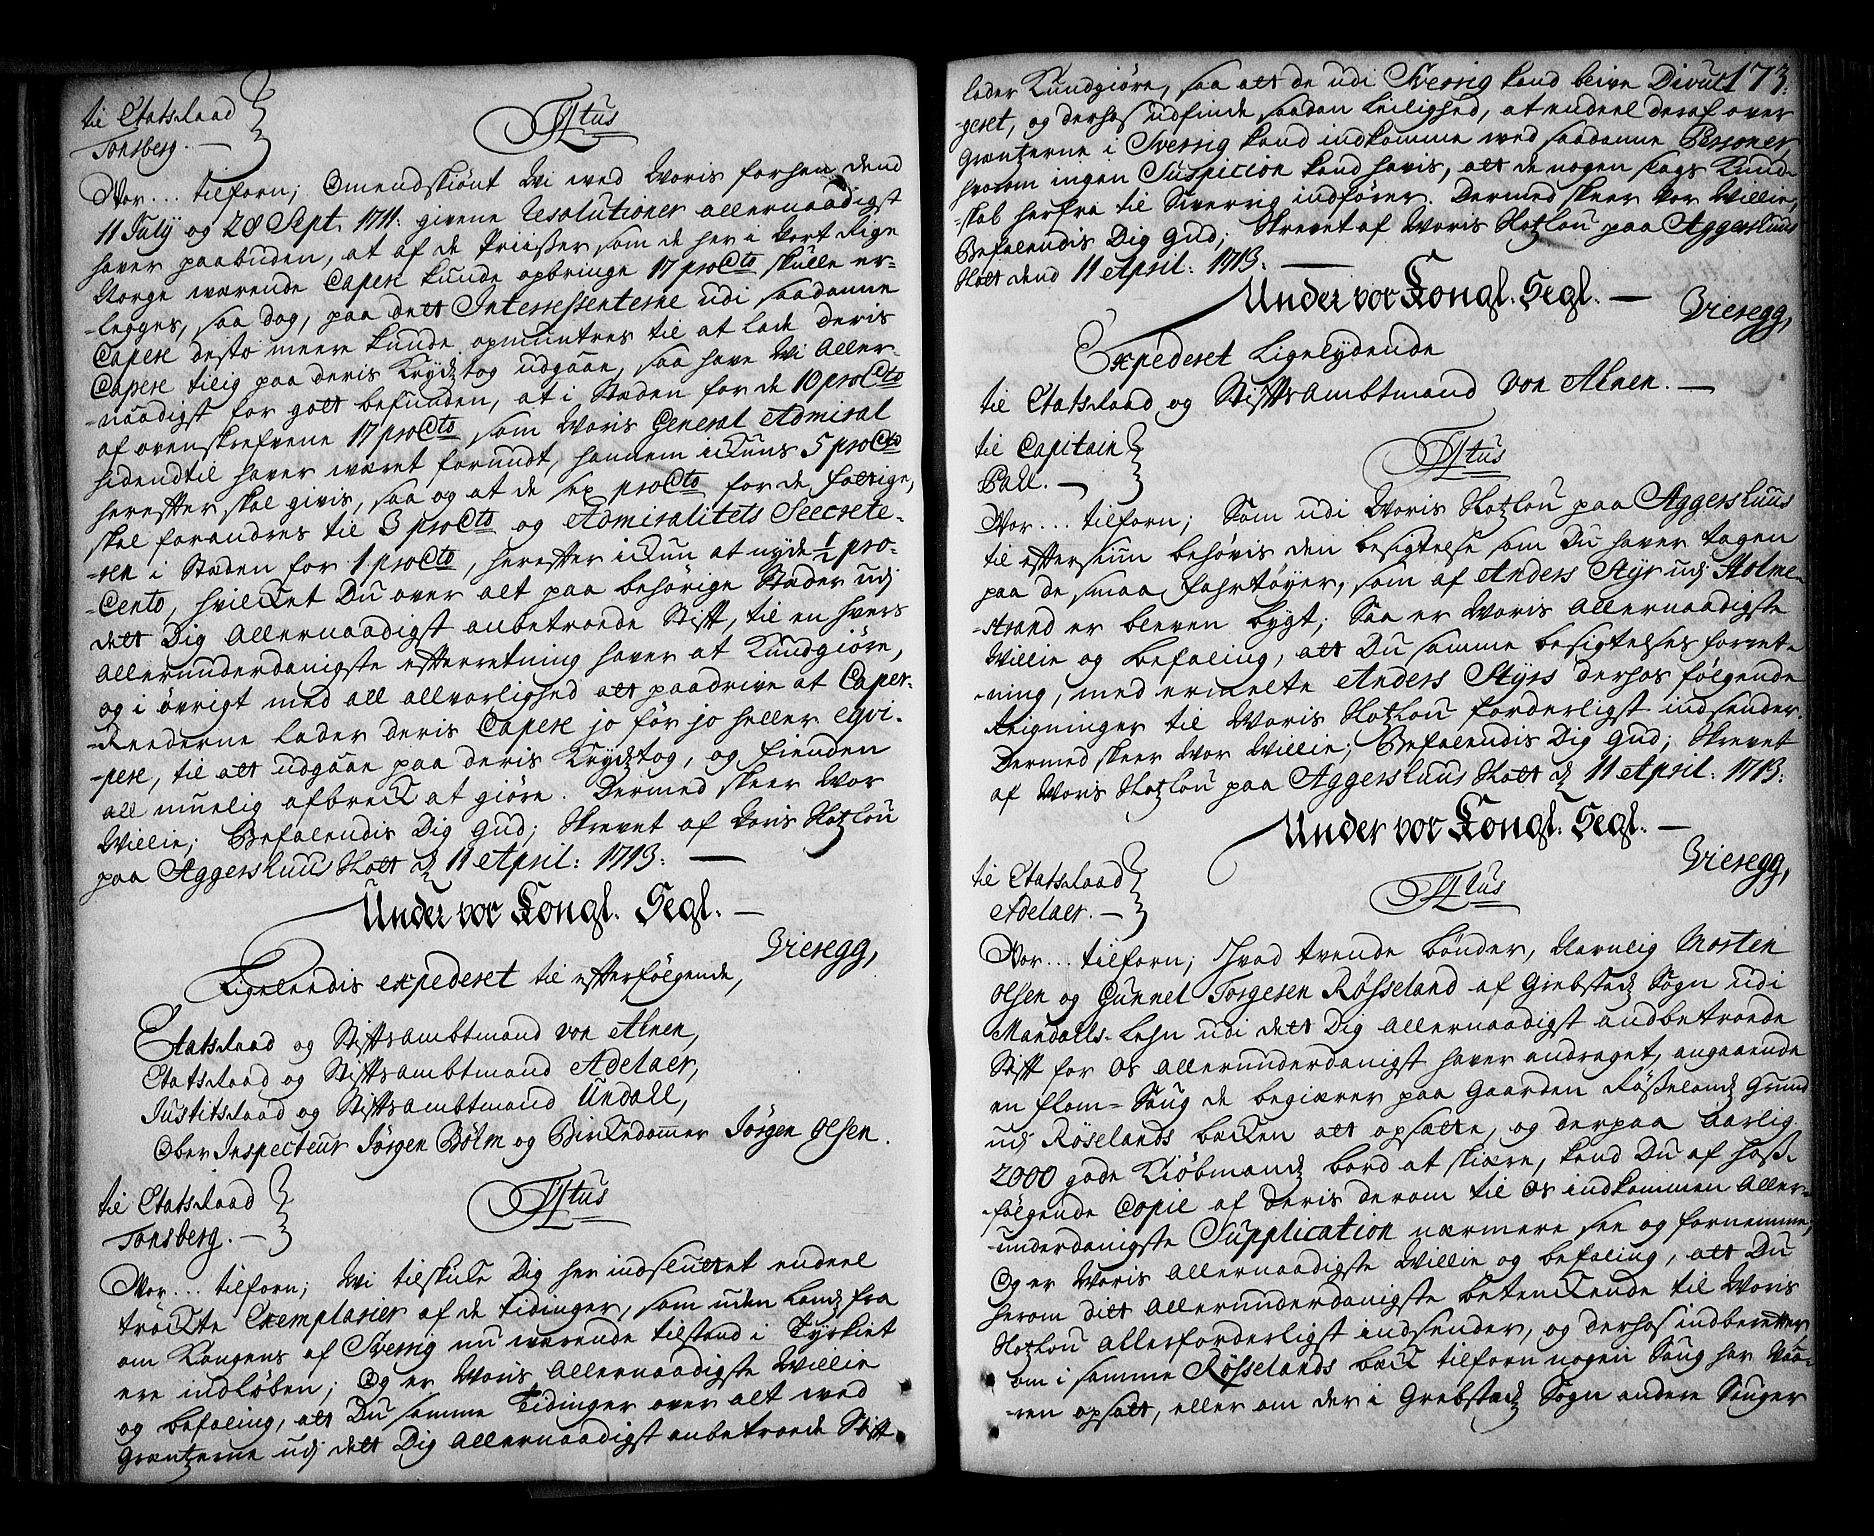 til Etatsraad
Tonsberg. —
Titus
Vor... tilforn; Omendskiønt Vi med Voris forhen dend
11 July og 28 Sept. 1711. givene Resolutioner allernaadigst
haver paabuden, at af de Priisser som de her i Vort Rige
Norge værende Capere kunde opbringe 17 proCto skulle er-
-legges, saa dog, paa dett Interessenterne udi saadanne
Capere desto meere kunde opmuntres til at lade deris
Capere tilig paa deris Krydstog udgaae, saa have Vi Aller-
-naadigst for gott befunden, at i Stæden for de 10 proCto
af ovenskrefvene 17 proCto som Voris General Admiral
hidendtil haver været forundt, hannem ickuns 5 proCto
herefter skal givis, saa og at de sex proCto for de fattige,
skal forandres til 3 proCto og Admiralitets Secrete-
-ren i Stæden for 1 proCto, herefter ickun at nyde 1/2 pro-
-Cento, hvilcket Du over alt paa behørige Stæder udj
dett Dig Allernaadigst anbetroede Stift, til en hvers
Allerunderdanigste efterretning haver at Kundgiøre,
og i øvrigt med all allvorlighed att paadrive at Caper-
-Reederne lader deris Capere jo før jo heller eqvi-
-pere, til att udgaae paa deris Krydstog, og fienden
all muelig afbreck at giøre. Dermed skeer Vor
Villie; Befalendis Dig Gud; Skrevet af Voris Slotzlou
paa Aggershuus Slott d 11 April: 1713: —
Under vor Kongl. Segl. —
Vieregg,
Ligeleedis expederet til efterfølgende,
Etatsraad og Stiftsambtmand von Ahnen,
Etatsraad og Stiftsambtmand Adelaer,
Justitsraad og Stiftsambtmand Undall,
Ober Inspecteur Jørgen Bølm og Birckedommer Jørgen Olsen.
til Etatsraad
Tonsberg. —
Titus
Vor... tilforn; Vi tilskicke Dig her indsluttet endeel
tröckte Exemplarier af de tidinger, som uden Lands fra
om Kongens af Sverrig nu værende tilstand i Tyrkiet
ere indløben; Og er Voris Allernaadigste Villie
og befaling, att Du samme Tidinger over alt ved
Grentzerne udj dett Dig Allernaadigst anbetroede Stift
173.
lader Kundgiøre, saa att de udi Sverrig kand blive Divul-
-geret, og derhos udfinde saadan leilighed, at endeel deraf over
Grentzerne i Sverrig kand indkomme med saadanne Personer
hvorom ingen Suspicion kand havis, att de nogen slags Kund-
-skab herfra til Sverrig indfører. Dermed skeer Vor Villie,
Befalendis Dig Gud; Skrevet af Voris Slotzlou paa Aggershuus
Slott dend 11 April: 1713. —
Under vor Kongl. Segl. —
Vieregg,
Expederet Ligelydende
til Etatsraad og Stiftsambtmand von Ahnen. —
til Capitain
Pall. —
Titus
Vor... tilforn; Som udi Voris Slotzlou paa Aggershuus
til eftersiun behøvis den besigtelse som Du haver tagen
paa de smaa fahrtøyer, som af Anders Styr udj Holme-
-strand er bleven bygt; Saa er Voris Allernaadigste
Villie og befaling, att Du samme besigtelses forret-
-ning, med ermelte Anders Styrs derhos følgende
Reigninger til Voris Slotzlou forderligst indsender.
Dermed skeer Vor Villie; Befalendis Dig Gud; Skrevet
af Voris Slotzlou paa Aggershuus Slott d 11 April: 1713:
Under vor Kongl. Segl. —
Vieregg,
til Etatsraad
Adelaer. —
Titus
Vor... tilforn; Hvad tvende bønder, Navnlig Morten
Olsen og Gunnel Torgesen Røsseland af Grebstads Sogn udi
Mandalls-Lehn udi dett Dig Allernaadigst andbetroede
Stift for Os Allerunderdanigst haver andraget, angaaende
en flom-Saug de begiærer paa Gaarden Røsselands Grund
udj Røselands becken att opsætte, og derpaa aarlig
2000 gode Kiøbmands bord at skiære, kand Du af hoss-
-følgende Copie af deris derom til Os indkommen Aller-
-underdanigste Supplication nærmere see og fornemme;
Og er Voris Allernaadigste Villie og befaling, att Du
herom ditt Allerunderdanigste betenckende til Voris
Slotzlou Allerforderligst indsender, og derhos indberetter
om i samme Røsselands beck tilforn nogen Saug har vaa-
-ren opsatt, eller om der i Grebstads Sogn andre Sauger